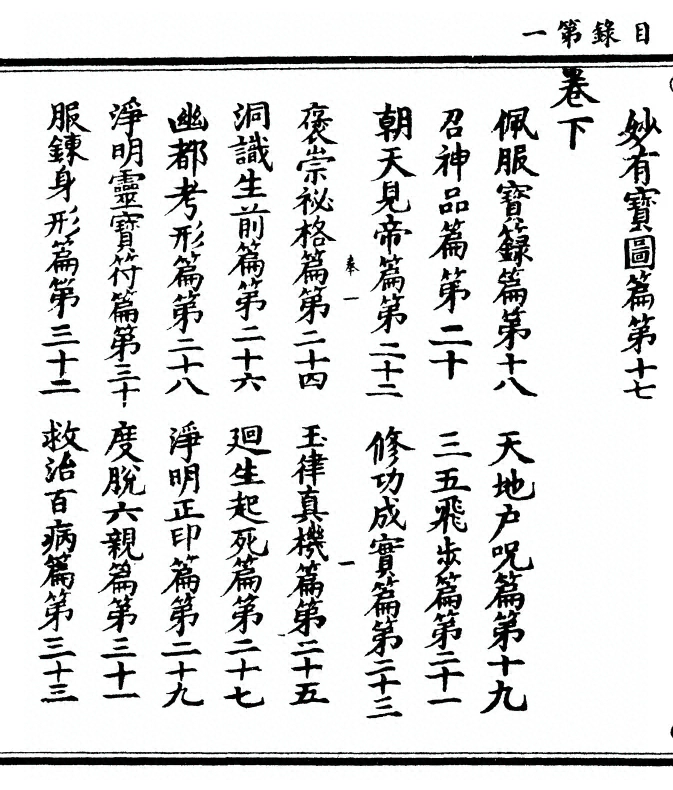 目錄第一
妙有寶圖篇第十七
卷下
佩服寶籙篇第十八
天地户呪篇第十九
召神品篇第二十
三五飛步篇第二十一
朝天見帝篇第二十二
修功成實篇第二十三
奉一
一
褒崇祕格篇第二十四
玉律真機篇第二十五
洞識生前篇第二十六
廻生起死篇第二十七
幽都考形篇第二十八
淨明正印篇第二十九
淨明靈寶符篇第三十
度脫六親篇第三十一
服鍊身形篇第三十二
救治百病篇第三十三